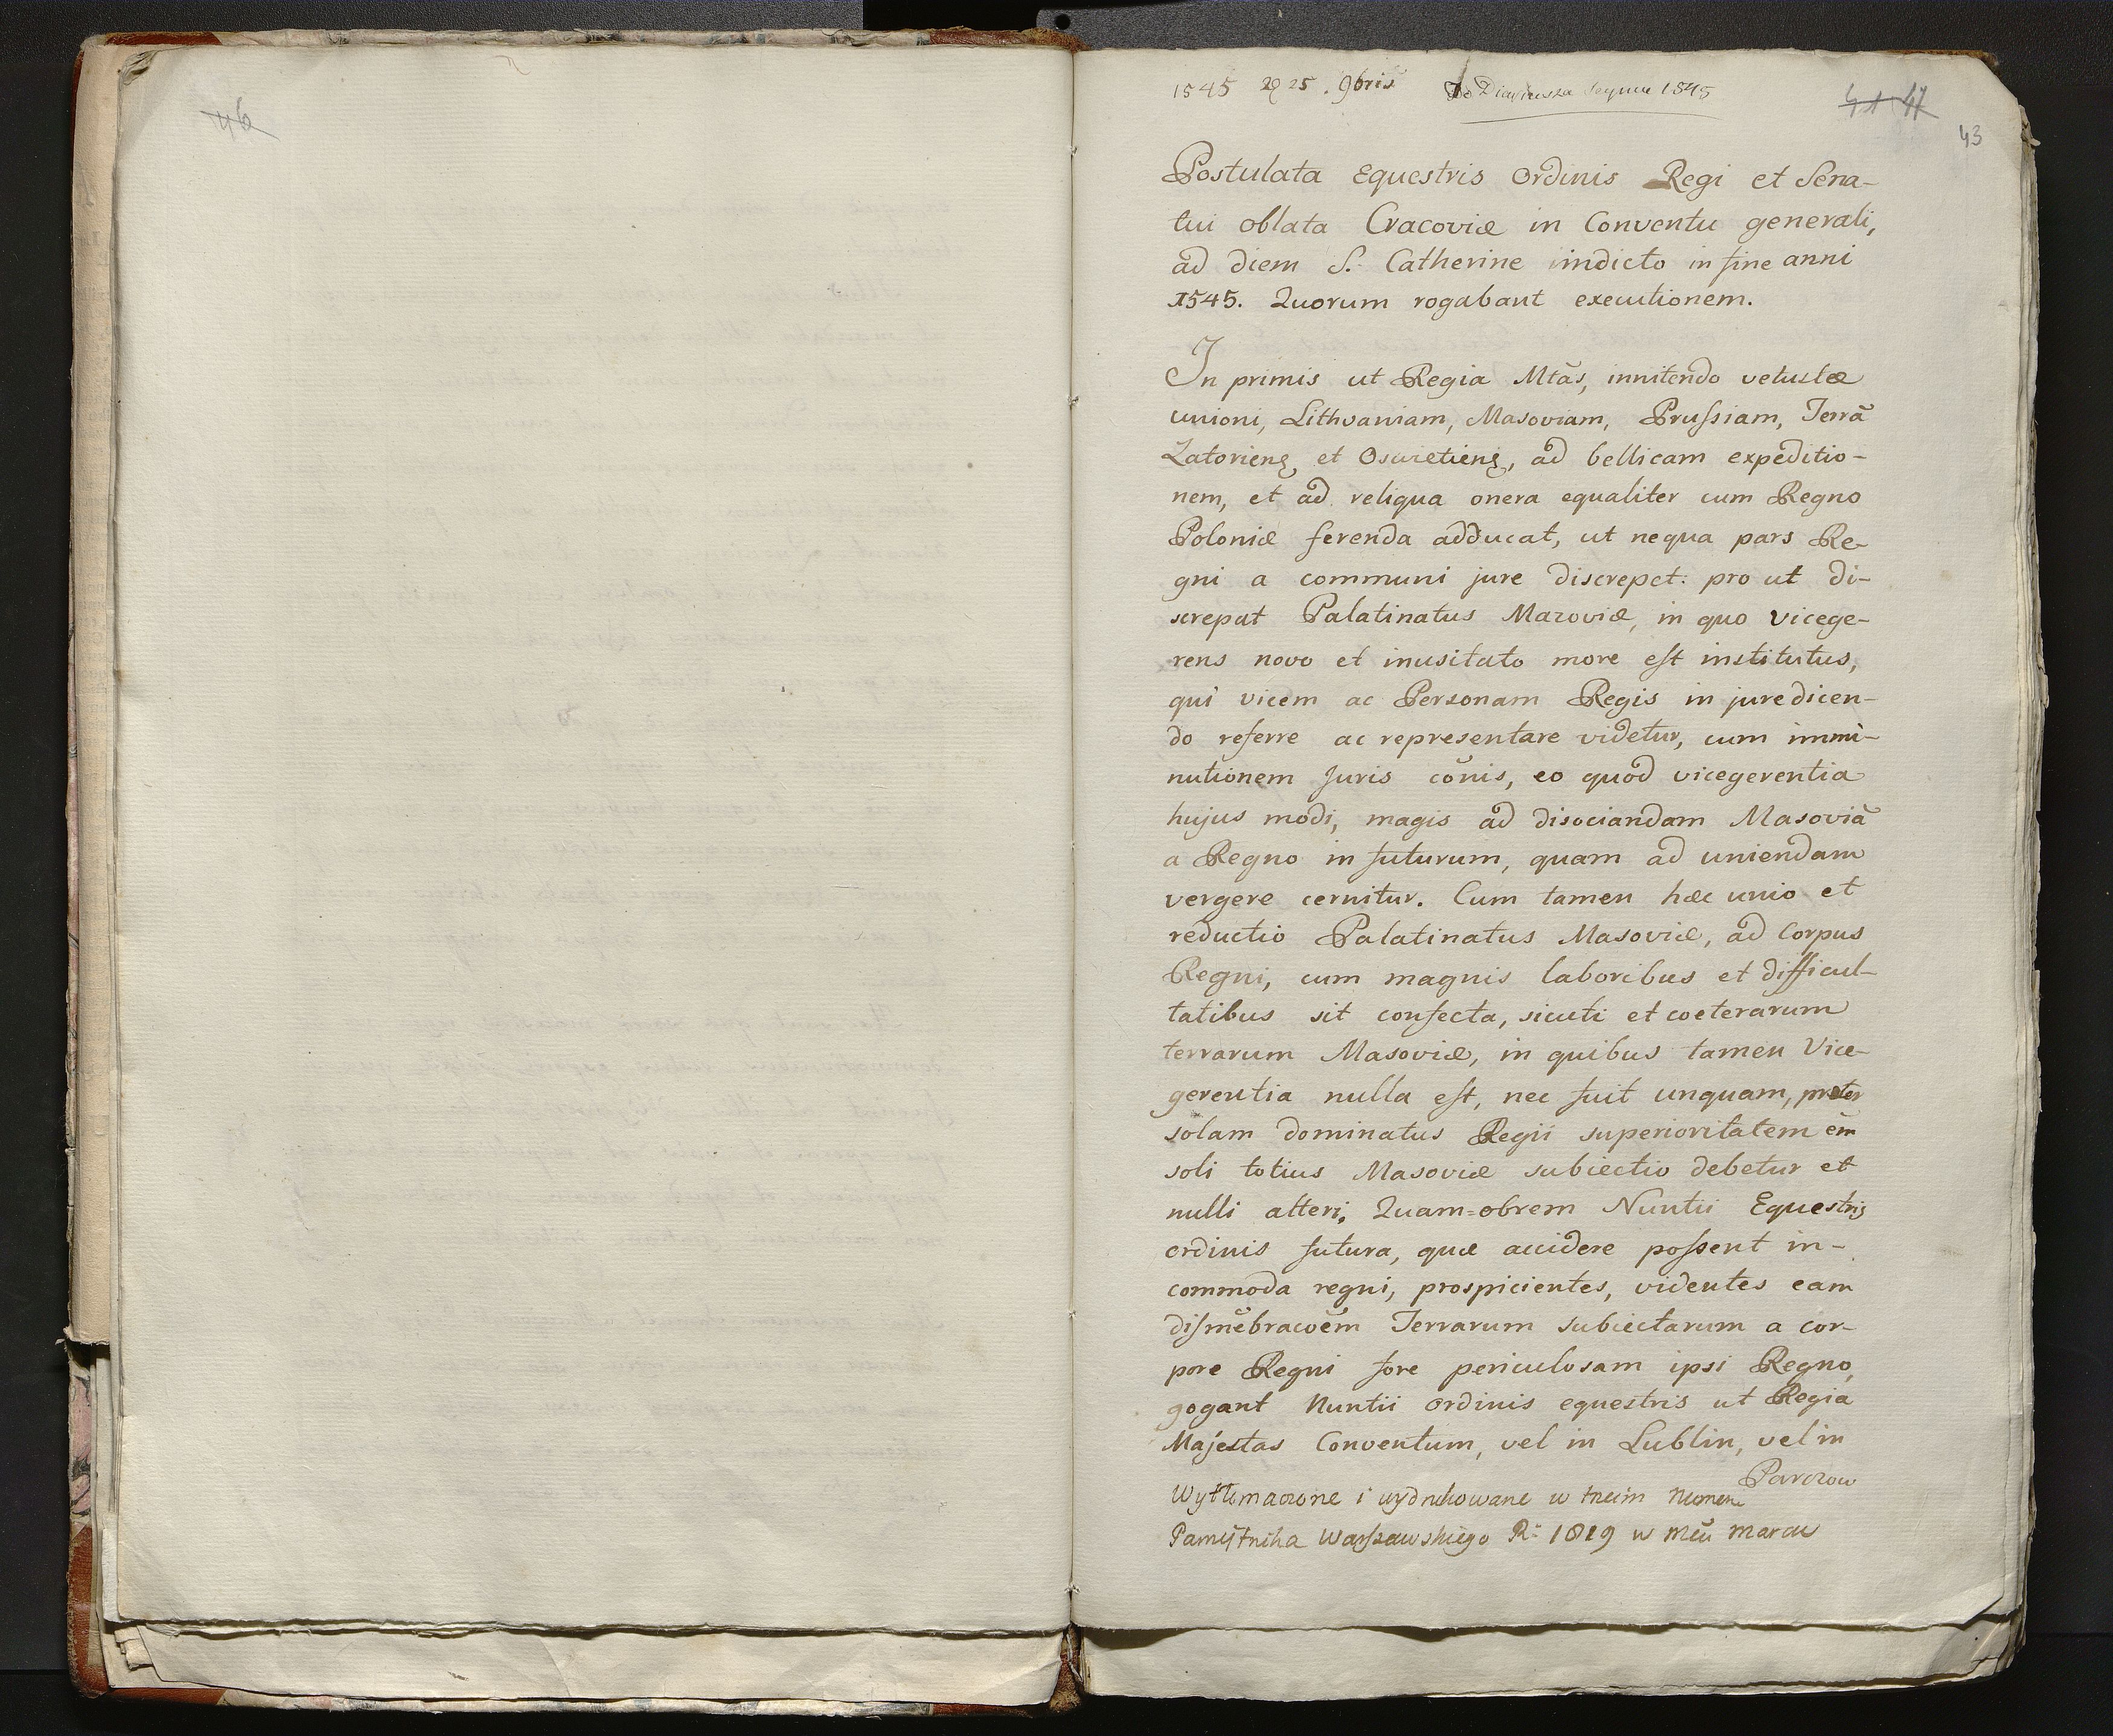 46
1545 25. 9bris Do Diariusza Seymu 1545
41 47
43
Postulata Equestris Ordinis Regi et Sena-
tui oblata Cracoviæ in Conventu generali,
ad diem S. Catherine indicto in fine anni
1545. Quorum rogabant executionem.
In primis ut Regia Mtãs, innitendo vetustæ
unioni, Lithvaniam, Masoviam, Prussiam, Terrã
Zatorieng et Oswietieng, ad bellicam expeditio-
nem, et ad reliqua onera equaliter cum Regno
Poloniæ ferenda adducat, ut nequa pars Re-
gni a communi jure discrepet: pro ut di-
screpat Palatinatus Mazoviæ, in quo vicege-
rens novo et inusitato more est institutus,
qui vicem ac Personam Regis in juredicen-
do referre ac representare videtur, cum immi-
nutionem Juris cõnis, eo quod vicegerentia
hujus modi, magis ad disociandam Masoviã
a Regno in futurum, quam ad uniendam
vergere cernitur. Cum tamen hæc unio et
reductio Palatinatus Masoviæ, ad Corpus
Regni, cum magnis laboribus et difficul-
tatibus sit confecta, sicuti et coeterarum
terrarum Masoviæ, in quibus tamen Vice-
gerentia nulla est, nec fuit unquam, præter
solam dominatus Regii superioritatem em̃
soli totius Masoviæ subiectio debetur et
nulli alteri, Quam=obrem Nuntii Equestris
ordinis futura, quæ accidere possent in-
commoda regni, prospicientes, videntes eam
dismẽbracoẽm Terrarum subiectarum a cor-
pore Regni fore periculosam ipsi Regno,
gogant Nuntii Ordinis equestris ut Regia
Majestas Conventum, vel in Lublin, vel in
Parczow
Wytłomaczone i wydrukowane w trzecim Numerze
Pamiętnika Warszawskiego R: 1819 w mcũ marcu